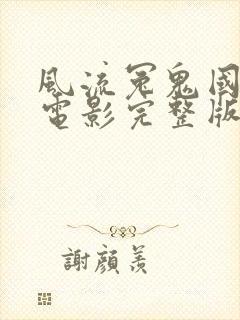 風流冤鬼國
電影完整版
謝顏羨